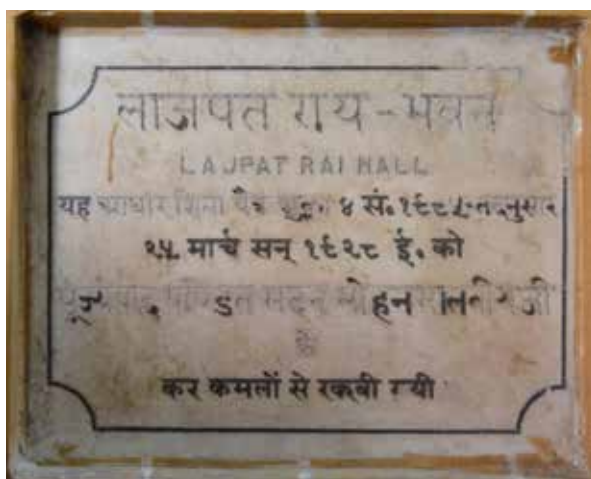 लाजपत राय - भवन
LAJPAT RAI HALL
यह आधार शिला चैत्र शुक्ल ४ सं. १९८५ तदनुसार
२५ मार्च सन् १९२८ ई. को
पूज्यपाद पण्डित मदन मोहन मालवीय जी
के
कर कमलों से रक्खी गयी